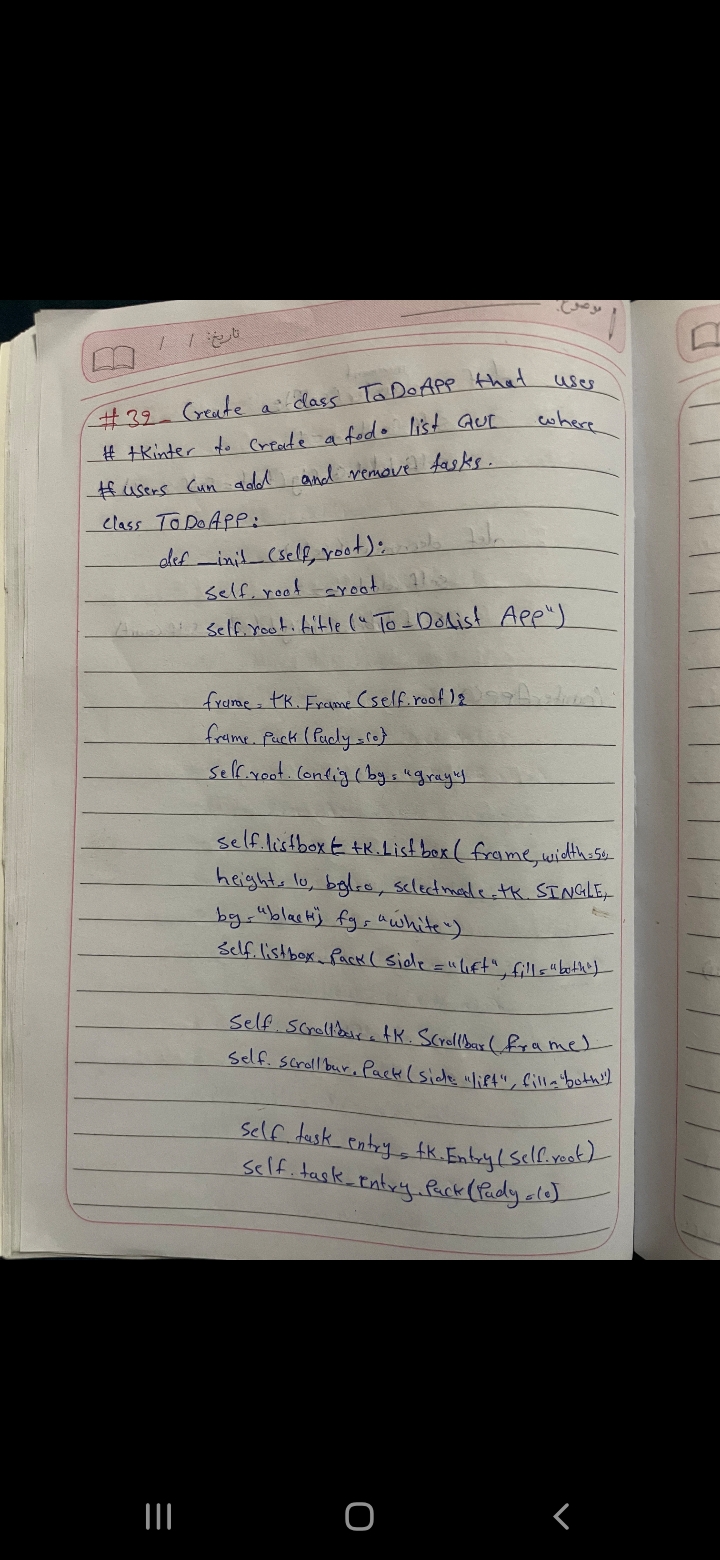 موضوع:
تاریخ: / /
#39- Create a class ToDoApp that uses
# tkinter to create a todo list GUI where
# users can add and remove tasks.
class ToDoApp:
def _init_(self, root):
self.root = root
self.root.title("To-Dolist App")
frame = tk.Frame(self.root)
frame.pack(pady=10)
self.root.config(bg="gray")
self.listbox = tk.Listbox(frame, width=50,
height=10, bg=0, selectmode=tk.SINGLE,
bg="black", fg="white")
self.listbox.pack(side="lift", fill="both")
self.scrollbar = tk.Scrollbar(frame)
self.scrollbar.pack(side="lift", fill="both")
self.task_entry = tk.Entry(self.root)
self.task_entry.pack(pady=10)